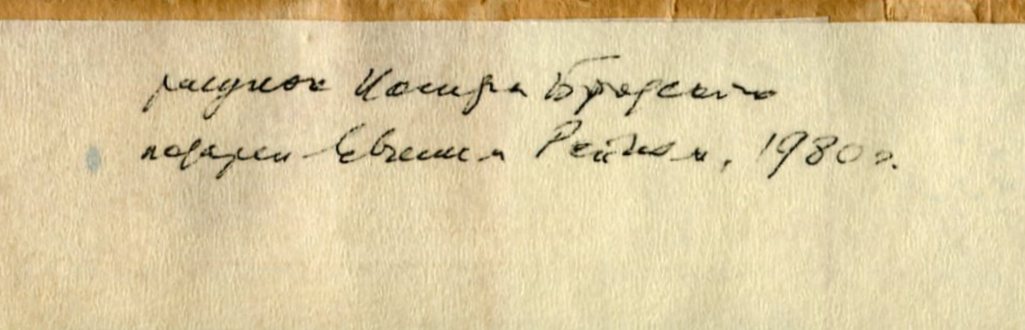 рисунок Иосифа Бродского
подарен Евгением Рейном, 1980 г.